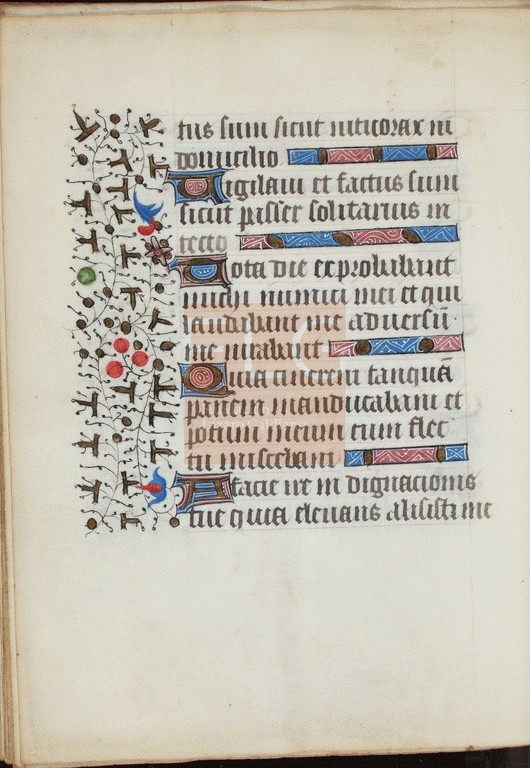 tus sum sicut niticorax in
domicilio
Vigilaui et factus sum
sicut passer solitarius in
tecto
Tota die exprobabant
michi inimici mei et qui
laudabant me aduersū
me iurabant
Quia cinerem tanquā
panem manducabam et
potum meum cum flet
tu miscebam
A facie ire indignacionis
tue quia eleuans alisisti me